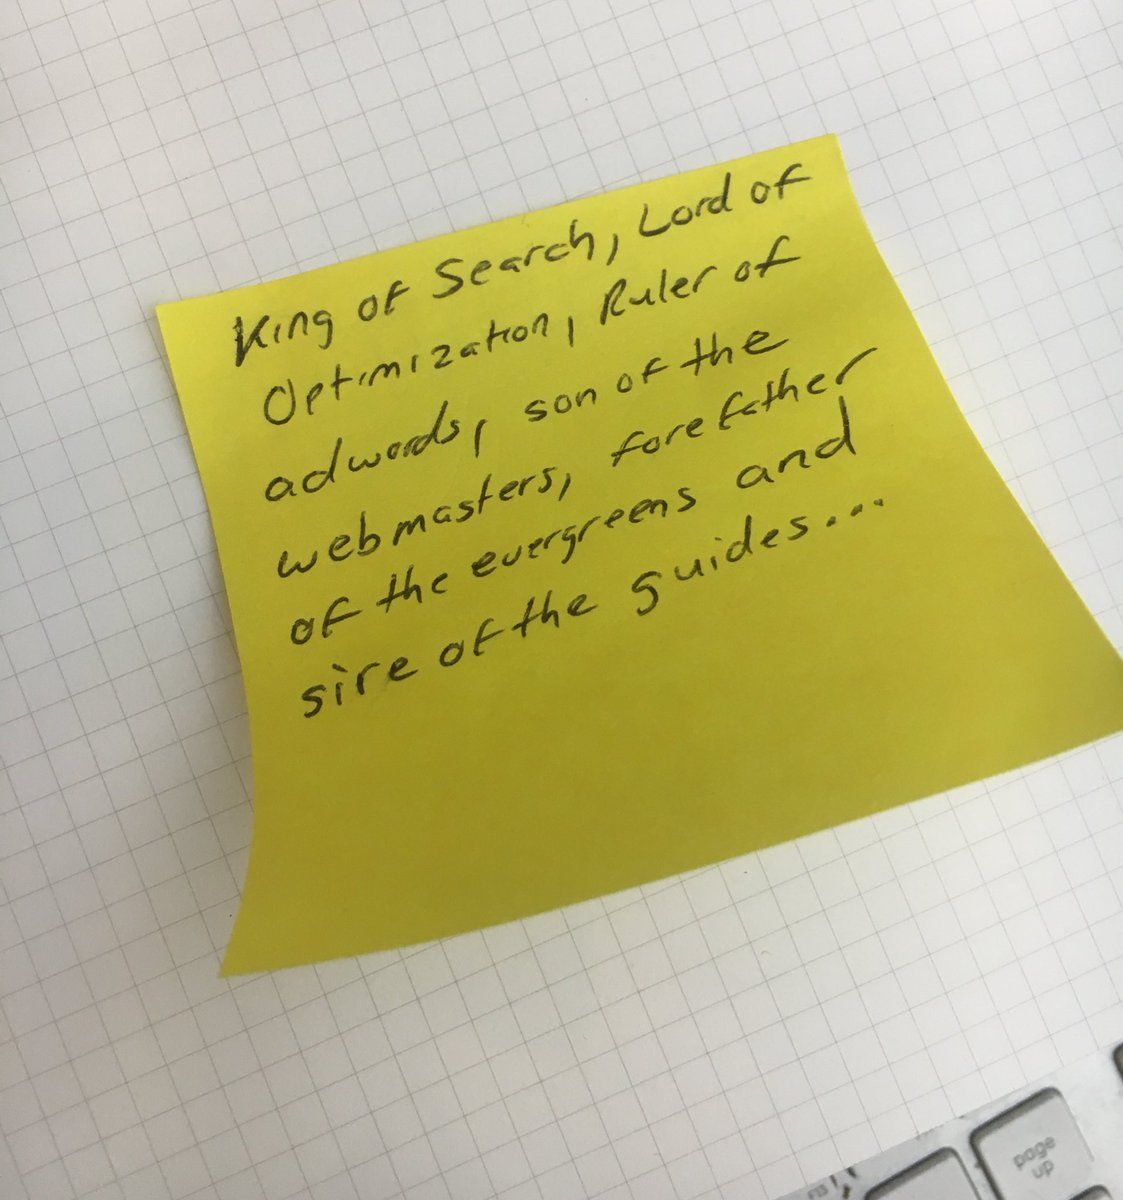 King of Search, Lord of
Optimization, Ruler of
adwords, son of the
webmasters, forefather
of the evergreens and
sire of the guides...
page
up
F15